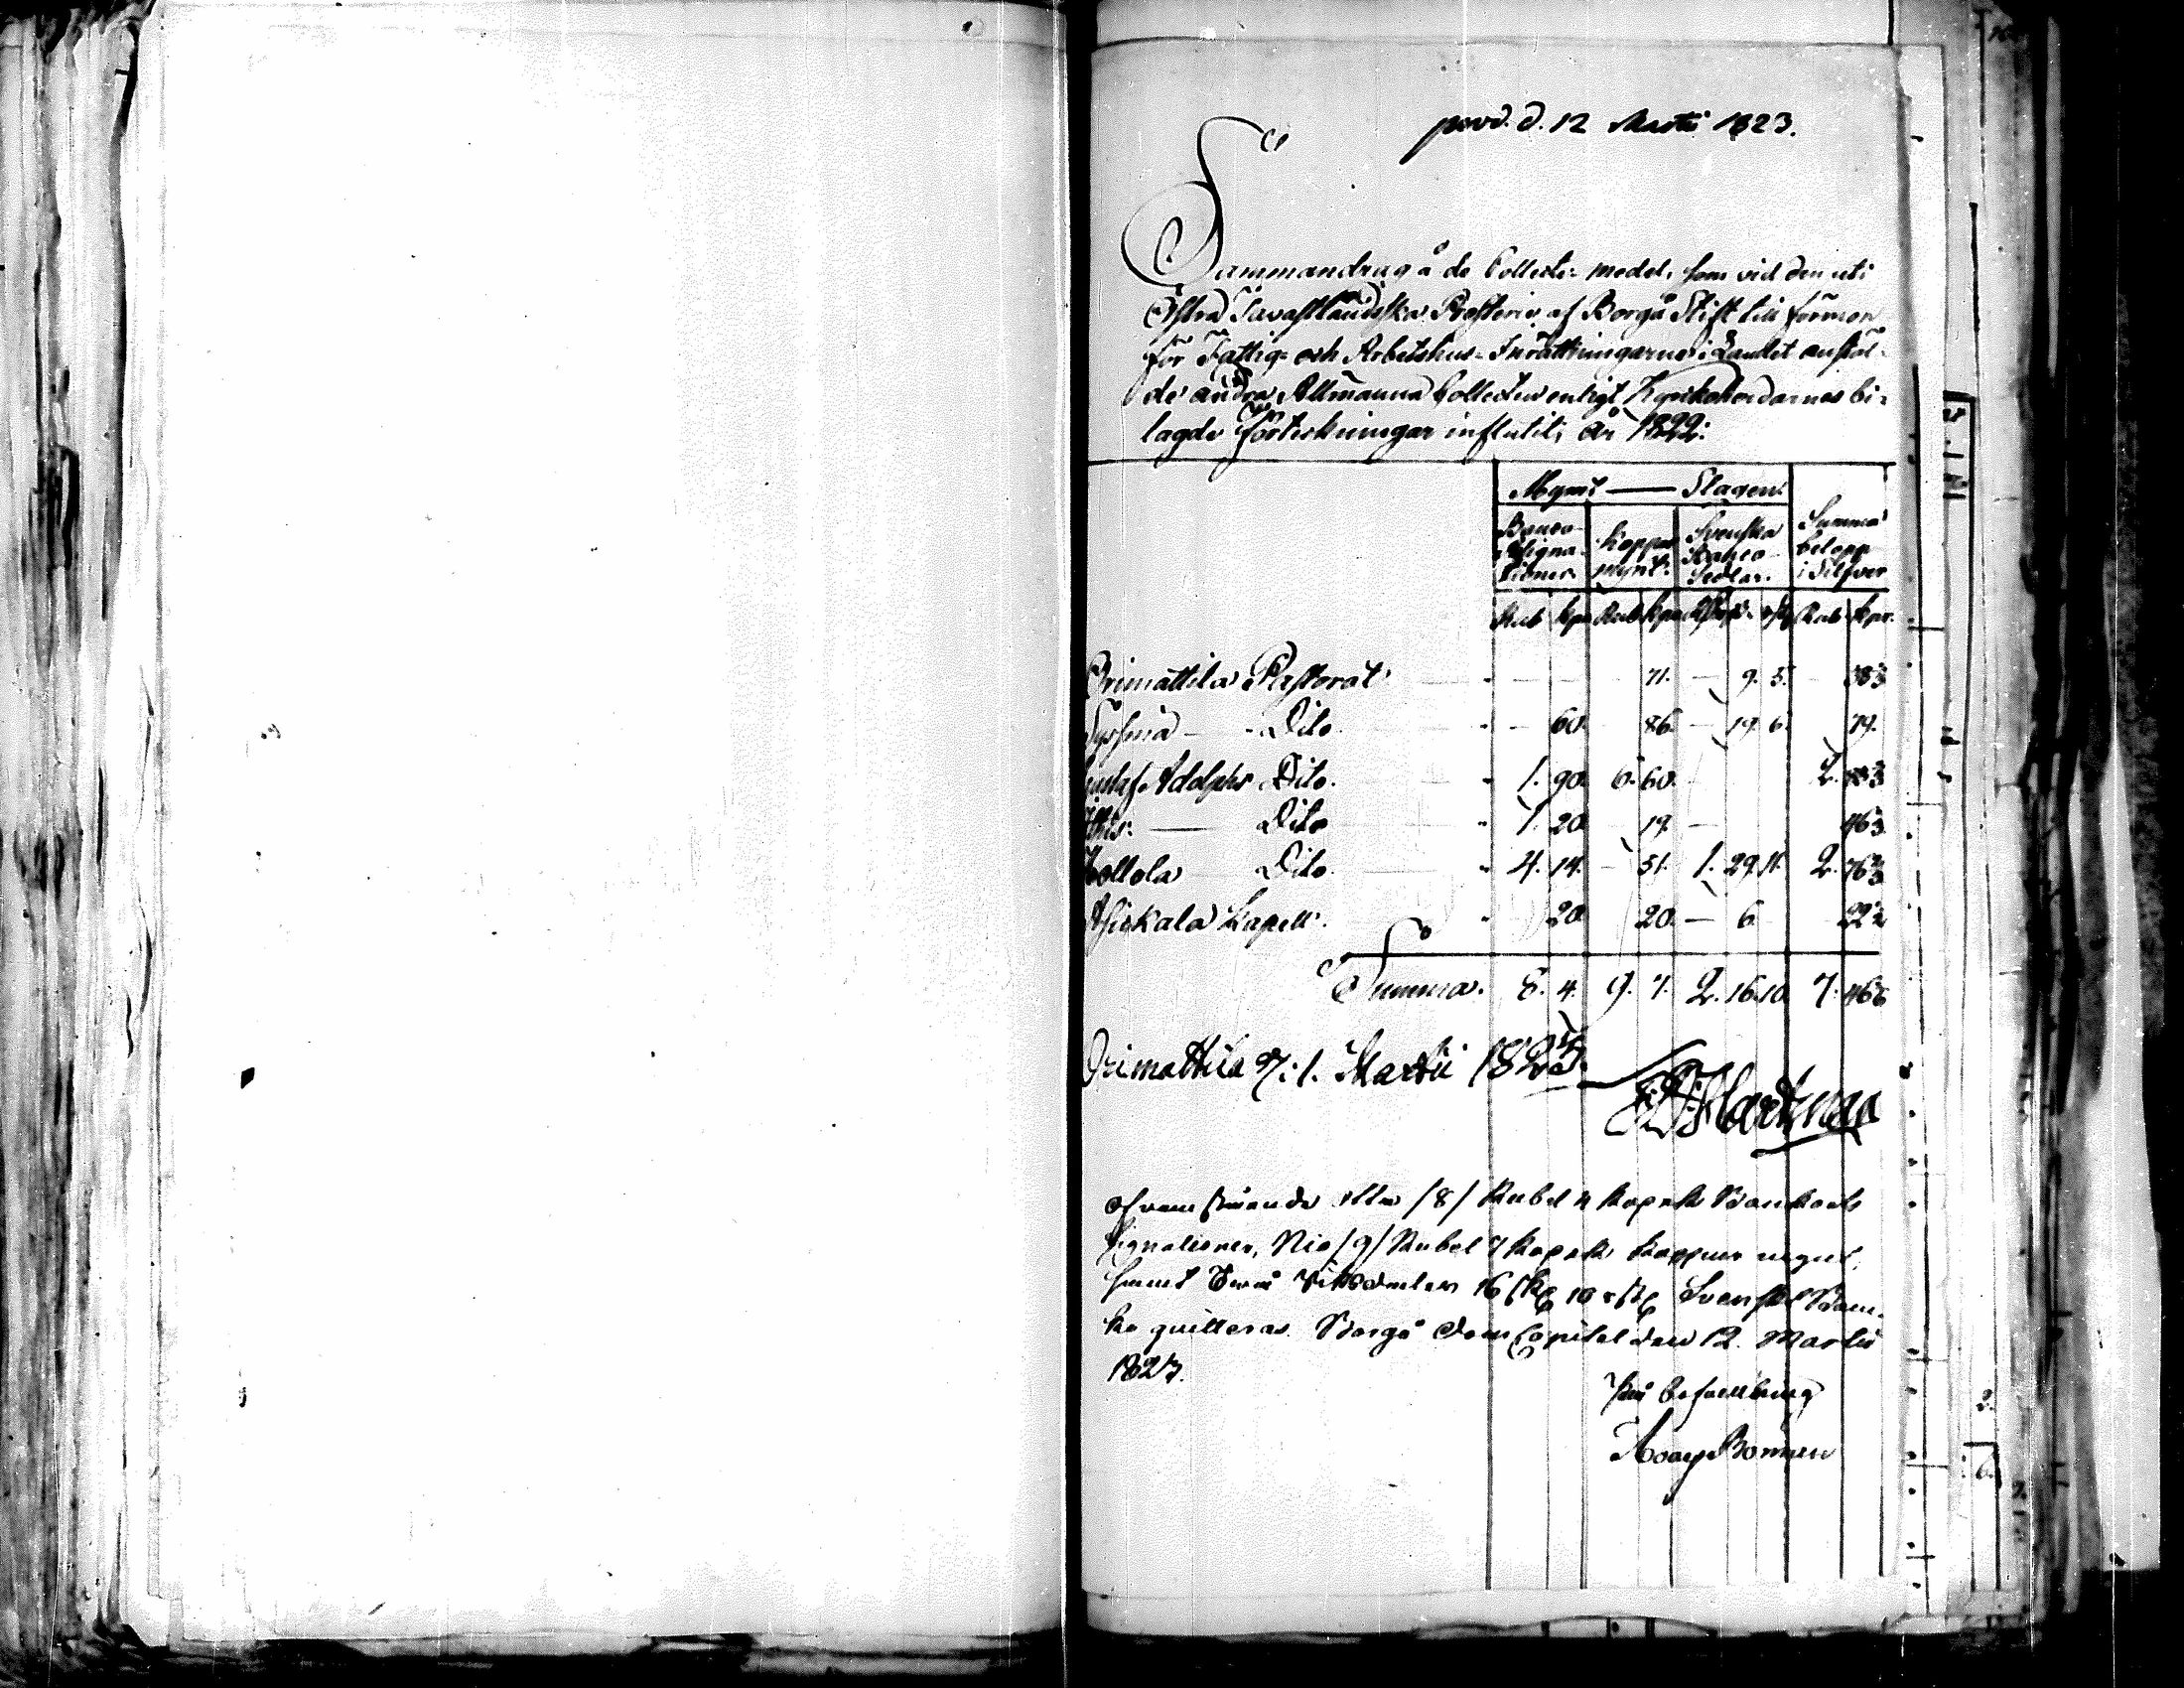 d. 12 Martii 1823.
Sammandrag å de Collecte-medel, som vid den uti
Östra Tavastländska Prosteriet af Borgå Stift till förmon
för Fattig- och Arbetshus-Inrättningarne i Landet anstäl-
de andra Allmänna Collecten enligt Kyrkoherdarnes bi-
lagde Förteckningar influtit, år 1822:
Mynt — Slagen
Banco Assigna-tioner. Koppar mynt. Svenska Banco Sedlar. Summa belopp i Silfver
Rub Kpk Rub Kpk Rub Kpk.
Orimattila Pastorat - — — — 71. — 9. 5. —
Sysmä — Dito. - — 60. — 86. — 19. 6. 79.
Gustaf Adolphs Dito. - 1. 90. 6. 60. 2.
Ithis: — Dito - 1. 20 19. —
Hollola Dito. - 4. 14. — 51. 1. 29. 11. 2.
Asickala Kapell. - 20. 20. — 6.
Summa. 8. 4. 9. 7. 2. 16. 10 7.
Orimattila d: 1. Martii 1823.
Hartman
åtta /8/ Rubel 4 Kopek Banko As
signationer, Nio /9/ Rubel 7 Kopek Koppar mynt,
samt Två Riksdaler 16 sk 10 rst Svenskt Ban-
ko quitteras. Borgå Dom Capitel den 12. Martii
1823.
På befallning